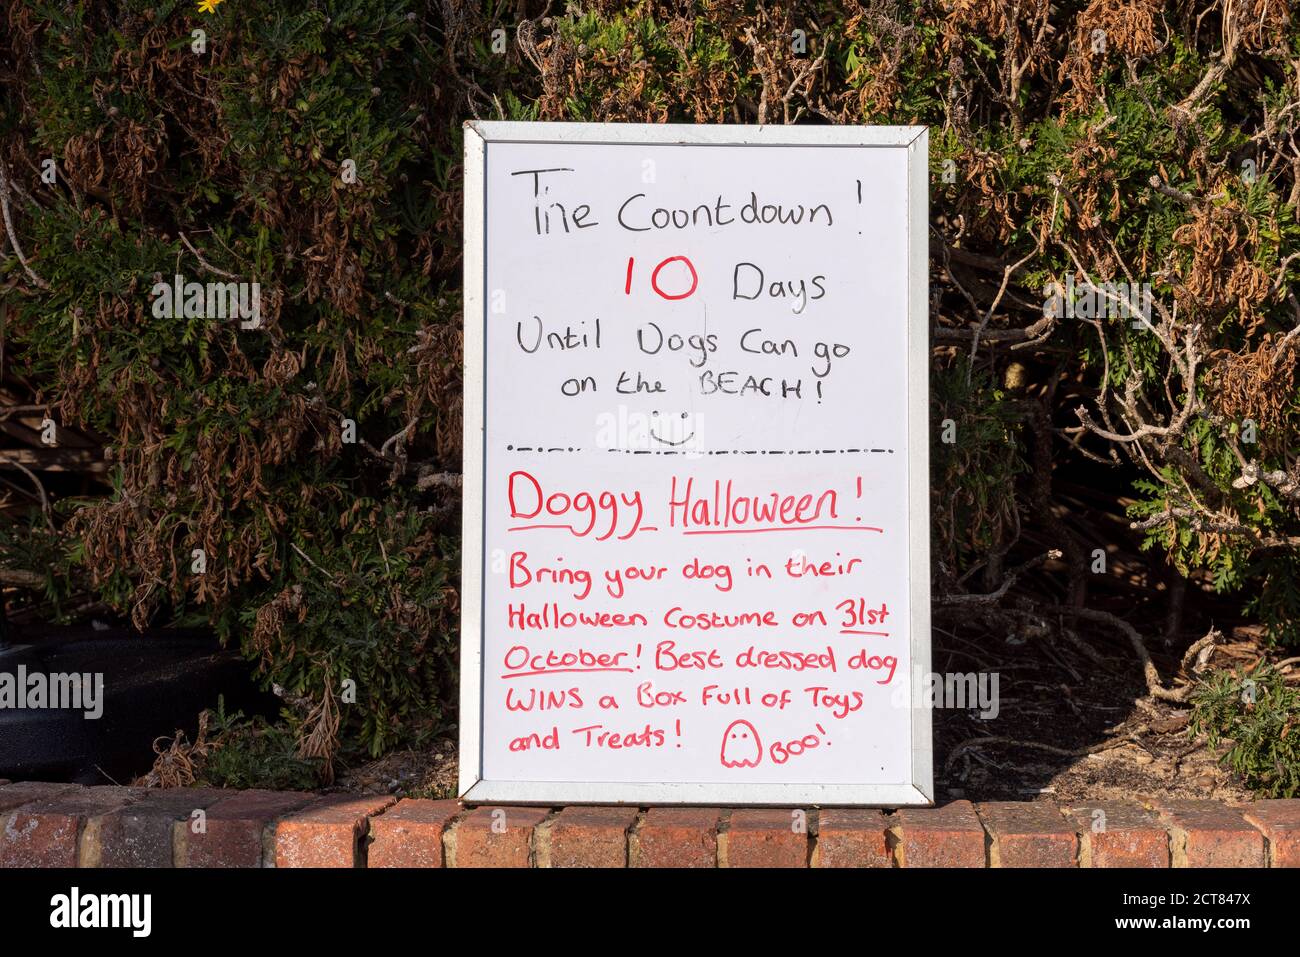 The Countdown!
10 Days
Until Dogs Can go
on the BEACH!
Doggy Halloween!
Bring your dog in their
Halloween Costume on 31st
October! Best dressed dog
WINS a Box Full of Toys
and Treats! Boo!
alamy
Image ID: 2CT847X
www.alamy.com